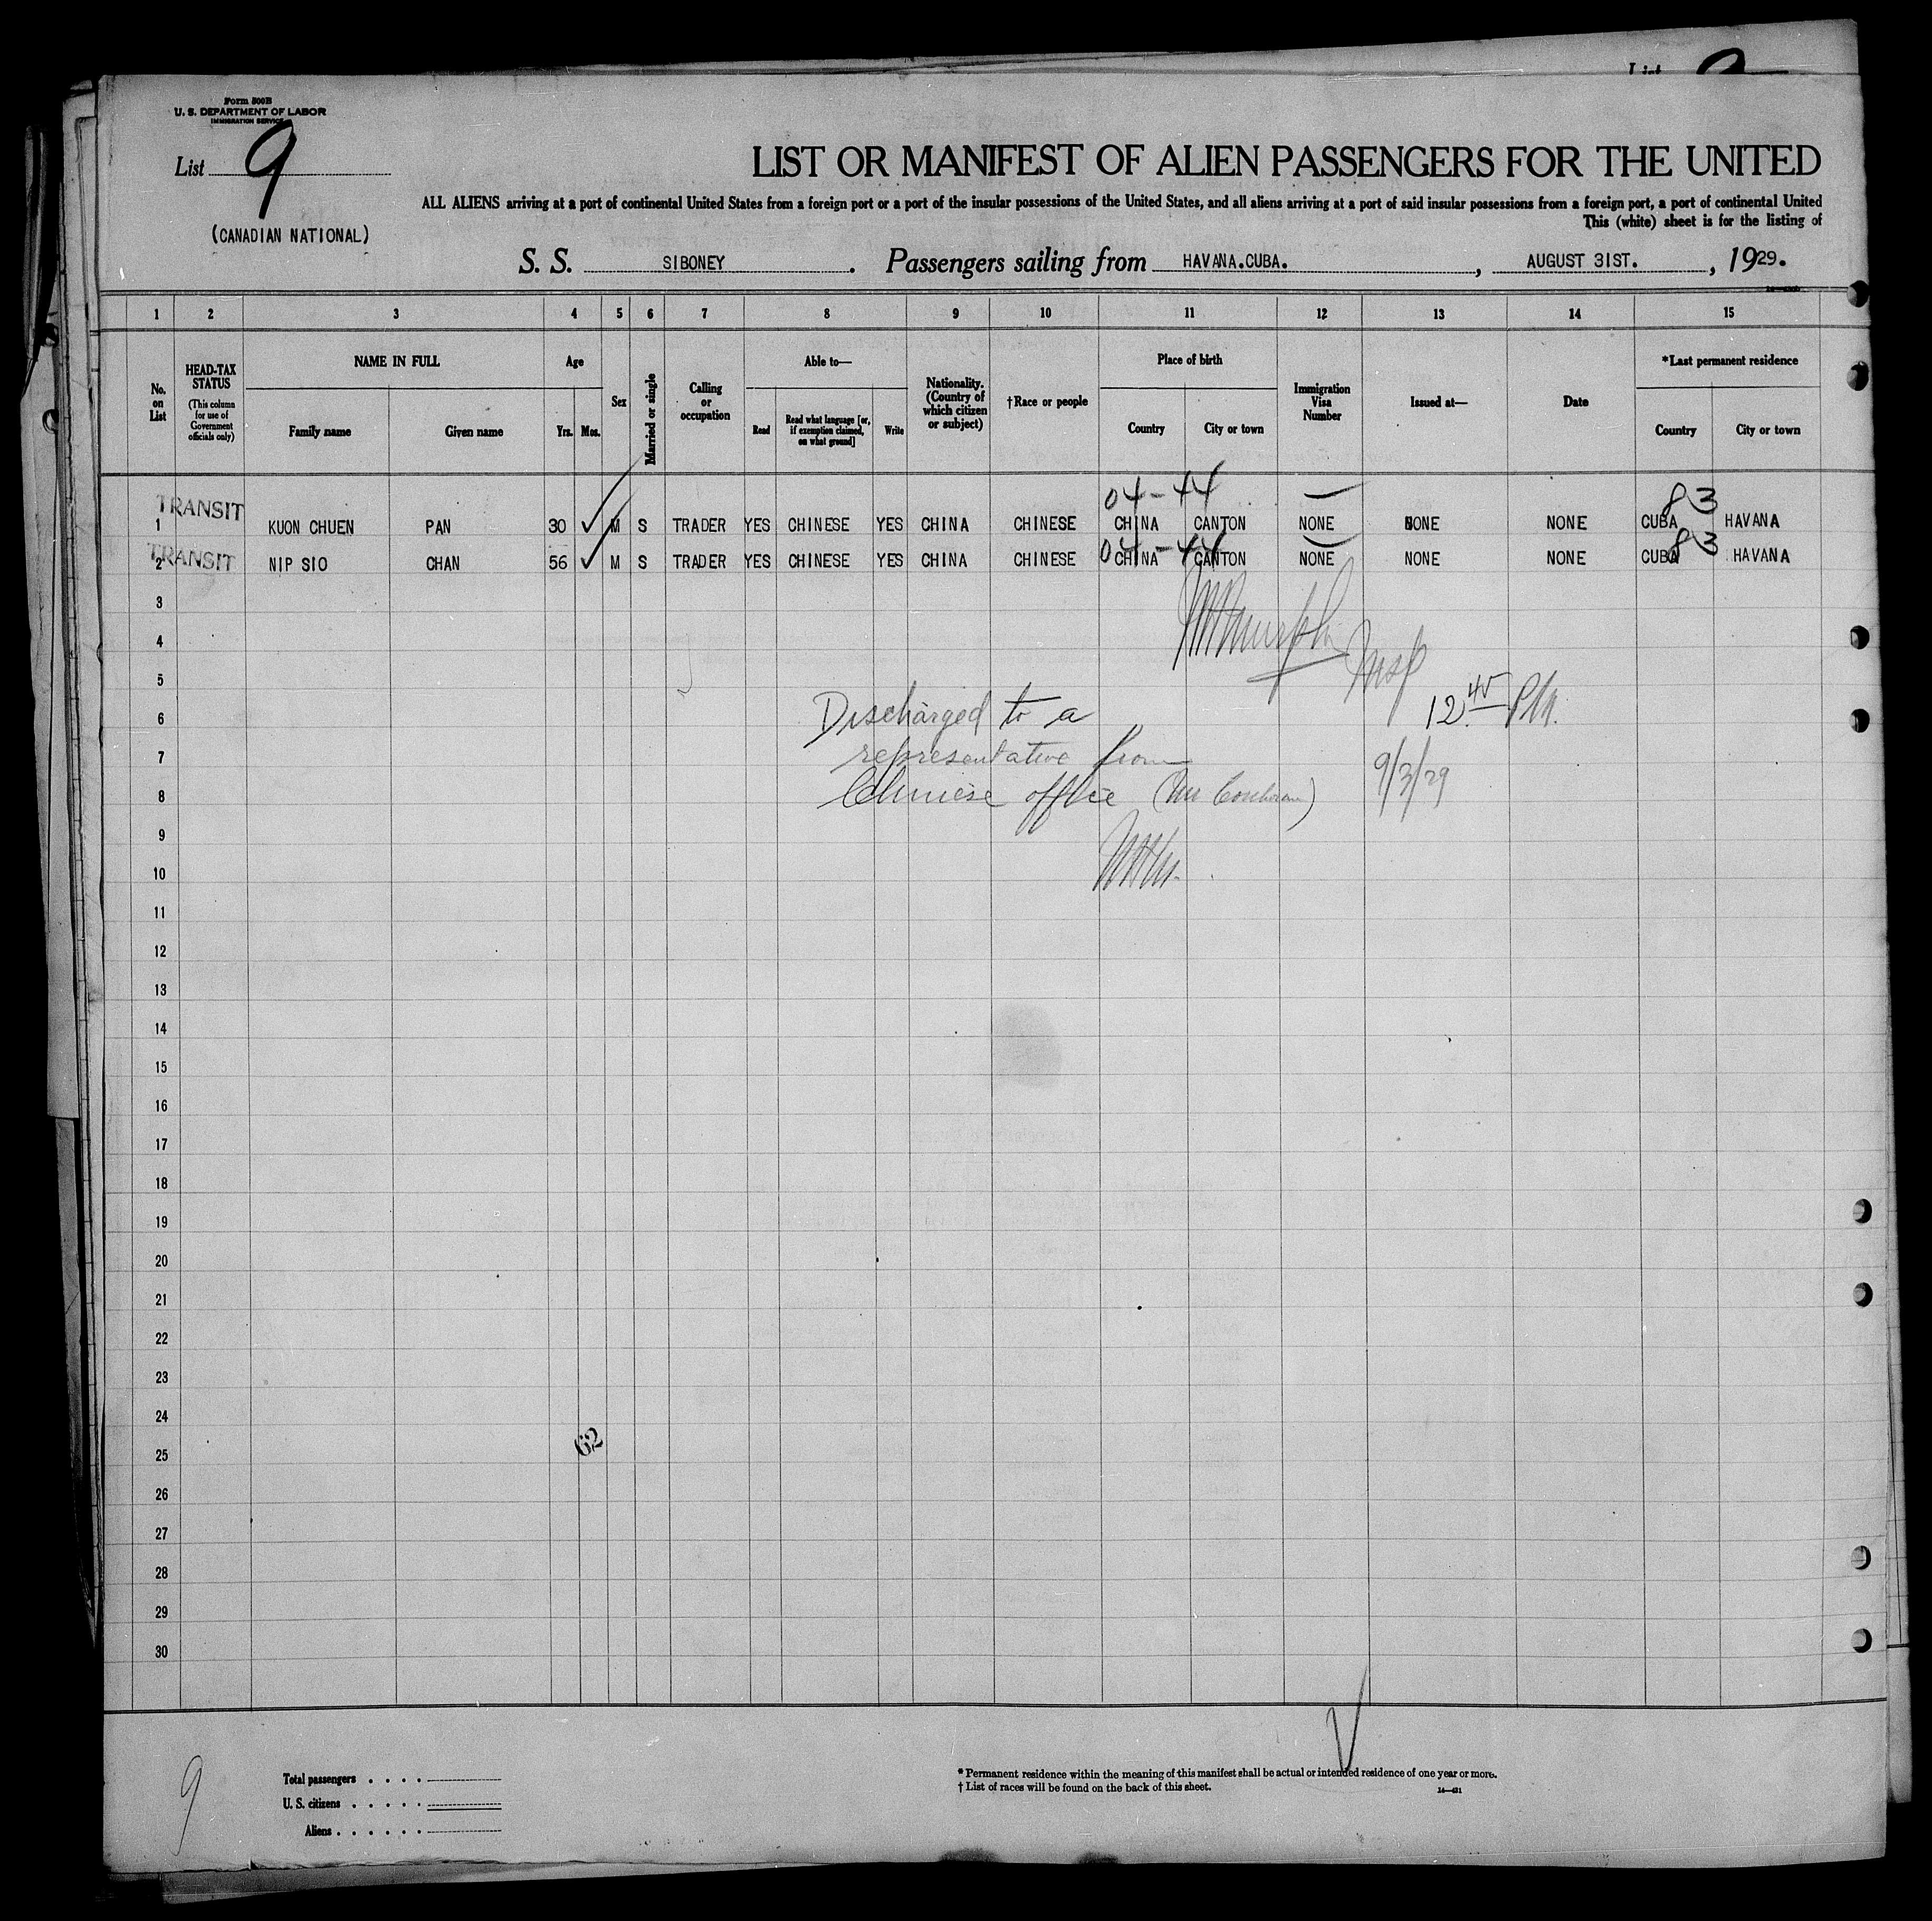 Form 500B
U. S. DEPARTMENT OF LABOR
IMMIGRATION SERVICE
List 9
(CANADIAN NATIONAL)
LIST OR MANIFEST OF ALIEN PASSENGERS FOR THE UNITED
ALL ALIENS arriving at a port of continental United States from a foreign port or a port of the insular possessions of the United States, and all aliens arriving at a port of said insular possessions from a foreign port, a port of continental United
This (white) sheet is for the listing of
S. S. SIBONEY. Passengers sailing from HAVANA.CUBA., AUGUST 31ST., 1929.
1 2 3 4 5 6 7 8 9 10 11 12 13 14 15
No. on List
HEAD-TAX STATUS (This column for use of Government officials only)
NAME IN FULL
Family name Given name
Age
Yrs. Mos.
Sex
Married or single
Calling or occupation
Able to—
Read
Read what language [or, if exemption claimed, on what ground]
Write
Nationality. (Country of which citizen or subject)
†Race or people
Place of birth
Country City or town
Immigration Visa Number
Issued at—
Date
*Last permanent residence
Country City or town
04-44 83
TRANSIT
1 KUON CHUEN PAN 30 M S TRADER YES CHINESE YES CHINA CHINESE CHINA CANTON NONE NONE NONE CUBA HAVANA
04-44 83
TRANSIT
2 NIP SIO CHAN 56 M S TRADER YES CHINESE YES CHINA CHINESE CHINA CANTON NONE NONE NONE CUBA HAVANA
3
4
Murphy
Insp
5
12 45 PM.
6 Discharged to a
7 representative from
9/3/29
8 Chinese office (Mr
9
10
11
12
13
14
15
16
17
18
19
20
21
22
23
24
62
25
26
27
28
29
30
9
Total passengers
U. S. citizens
Aliens
* Permanent residence within the meaning of this manifest shall be actual or intended residence of one year or more.
† List of races will be found on the back of this sheet.